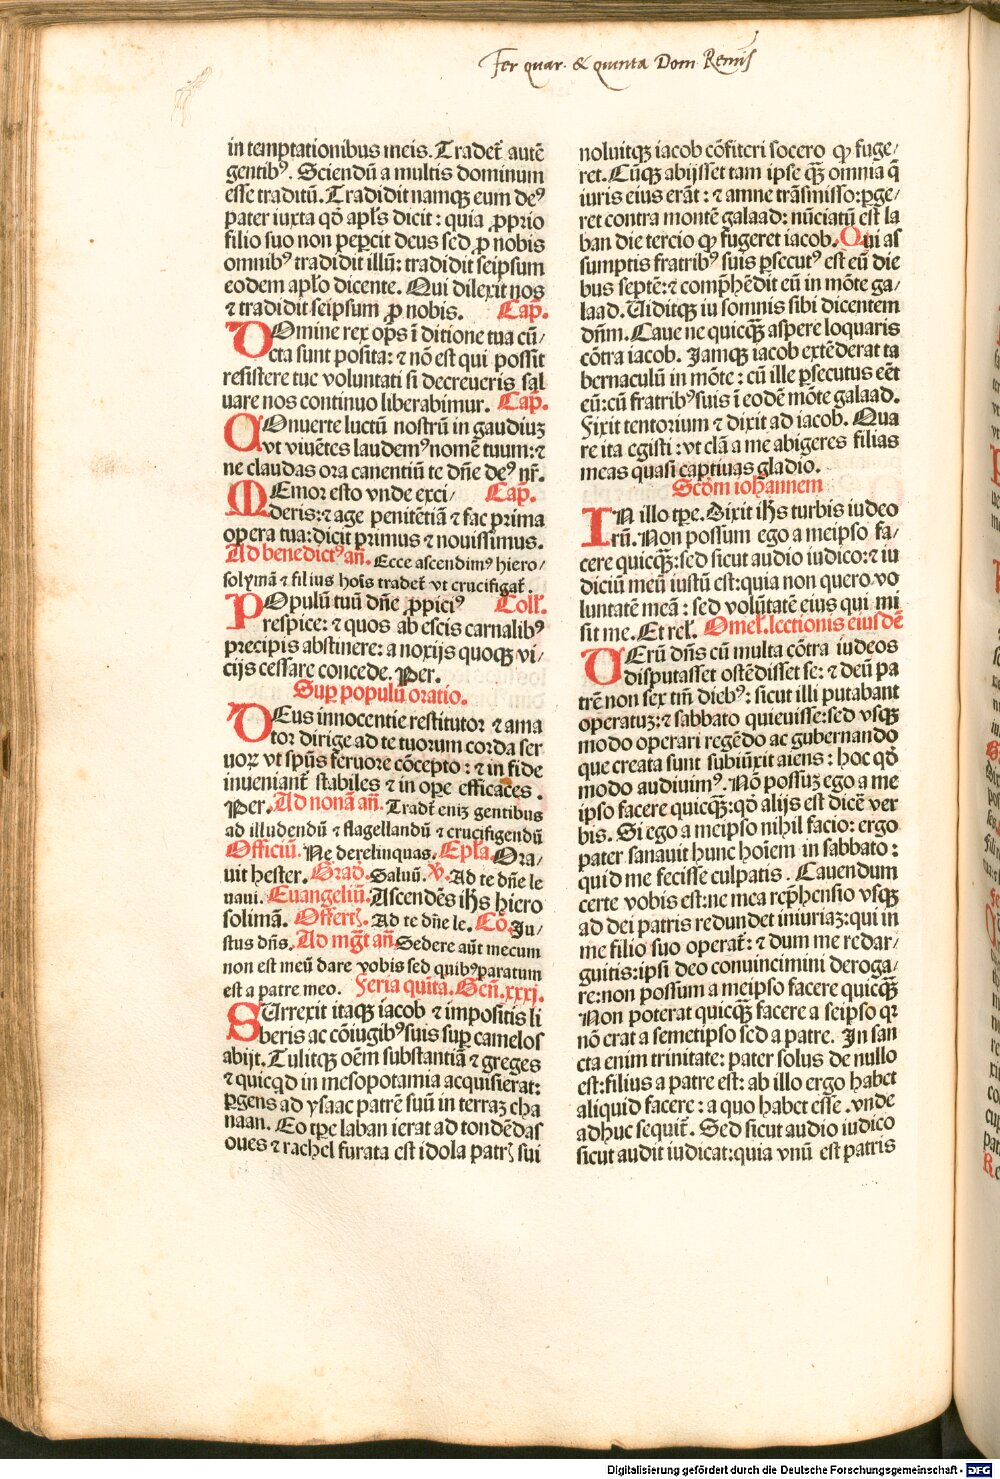 Fer quar. & quinta Dom. Remiſ
in temptationibus meis. Tradet̄ autē
gentibꝰ. Sciendū a multis dominum
esse traditū. Tradidit namqꝫ eum deꝰ
pater iuxta qḋ apl̄s dicit : quia ꝓprio
filio suo non pepercit deus sed ꝓ nobis
omnibꝰ tradidit illū: tradidit seipsum
eodem apl̄o dicente. Qui dilexit nos
⁊ tradidit seipsum ꝓ nobis. Cap̄.
DOmine rex op̄s ī ditione tua cū/
cta sunt posita: ⁊ nō est qui possit
resistere tue voluntati si decreueris sal
uare nos continuo liberabimur. Cap̄.
COnuerte luctū nostrū in gaudiuꝫ
vt viuētes laudemꝰ nomē tuum: ⁊
ne claudas ora canentiū te dn̄e deꝰ nr̄.
MEmor esto vnde exci/ Cap̄.
deris: ⁊ age penitētiā ⁊ fac prima
opera tua: dicit primus ⁊ nouissimus.
Ad benedictꝰ an̄. Ecce ascendimꝰ hiero/
solymā ⁊ filius hoīs tradet̄ vt crucifigat̄.
POpulū tuū dn̄e ꝓpiciꝰ Coll̄.
respice: ⁊ quos ab escis carnalibꝰ
precipis abstinere: a noxijs quoqꝫ vi/
cijs cessare concede. Per.
Suꝑ populū oratio.
DEus innocentie restitutor ⁊ ama
tor dirige ad te tuorum corda ser
uoꝝ vt spūs feruore cōcepto : ⁊ in fide
inueniant̄ stabiles ⁊ in oꝑe efficaces.
Per. Ad nonā an̄. Tradēt eniꝫ gentibus
ad illudendū ⁊ flagellandū ⁊ crucifigendū
Officiū. Ne derelinquas. Epl̄a. Ora/
uit hester. Grad̄. Saluū. ℣. Ad te dn̄e le
uaui. Euangeliū. Ascendēs ih̄s hiero
solimā. Offert̄. Ad te dn̄e le. Cō. Ju/
stus dn̄s. Ad mg̅t an̄ Sedere aūt mecum
non est meū dare vobis sed quibꝰ paratum
est a patre meo. Feria quīta. Gen̄. xxxj.
SUrrexit itaqꝫ iacob ⁊ impositis li
beris ac cōiugibꝰ suis suꝑ camelos
abijt. Tulitqꝫ oēm substantiā ⁊ greges
⁊ quicqd in mesopotamia acquisierat:
ꝑgens ad ysaac patrē suū in terraꝫ cha
naan. Eo tꝑe laban ierat ad tondēdas
oues ⁊ rachel furata est idola patrꝭ sui
noluitqꝫ iacob cōfiteri socero ꝙ fuge/
ret. Cūqꝫ abijsset tam ipse qꝫ̄ omnia q̄
iuris eius erāt : ⁊ amne trāsmisso: ꝑge/
ret contra montē galaad: nūciatū est la
ban die tercio ꝙ fugeret iacob. Qui as
sumptis fratribꝰ suis ꝑsecutꝰ est eū die
bus septē: ⁊ comp̄hēdit eū in mōte ga/
laad. Uiditqꝫ iu somnis sibi dicentem
dn̄m. Caue ne quicqꝫ̄ aspere loquaris
cōtra iacob. Jamqꝫ iacob extēderat ta
bernaculū in mōte: cū ille ꝑsecutus eēt
eū: cū fratribꝰ suis ī eodē mōte galaad.
Fixit tentorium ⁊ dixit ad iacob. Qua
re ita egisti : vt clā a me abigeres filias
meas quasi captiuas gladio.
Scd̄m iohannem
IN illo tꝑe. Dixit ih̄s turbis iudeo
rū. Non possum ego a meipso fa/
cere quicqꝫ: sed sicut audio iudico: ⁊ iu
diciū meū iustū est: quia non quero vo
luntatē meā : sed volūtatē eius qui mi
sit me. Et rel̄. Omel̄. lectionis eiusdē
UErū dn̄s cū multa cōtra iudeos
disputasset ostēdisset se: ⁊ deū pa
trē non sex tm̄ diebꝰ: sicut illi putabant
operatuꝫ: ⁊ sabbato quieuisse: sed vsqꝫ
modo operari regēdo ac gubernando
que creata sunt subiūxit aiens : hoc qḋ
modo audiuimꝰ. Nō possuꝫ ego a me
ipso facere quicqꝫ: qḋ alijs est dicē ver
bis. Si ego a meipso nihil facio: ergo
pater sanauit hunc hoīem in sabbato :
quid me fecisse culpatis. Cauendum
certe vobis est: ne mea rep̄hensio vsqꝫ
ad dei patris redundet iniuriaꝫ: qui in
me filio suo operat̄: ⁊ dum me redar/
guitis: ipsi deo conuincimini deroga/
re: non possum a meipso facere quicqꝫ̄
Non poterat quicqꝫ̄ facere a seipso qꝛ
nō erat a semetipso sed a patre. In san
cta enim trinitate: pater solus de nullo
est: filius a patre est: ab illo ergo habet
aliquid facere : a quo habet esse. vnde
adhuc sequit̄. Sed sicut audio iudico
sicut audit iudicat: quia vnū est patris
Digitalisierung gefördert durch die Deutsche Forschungsgemeinschaft - DFG